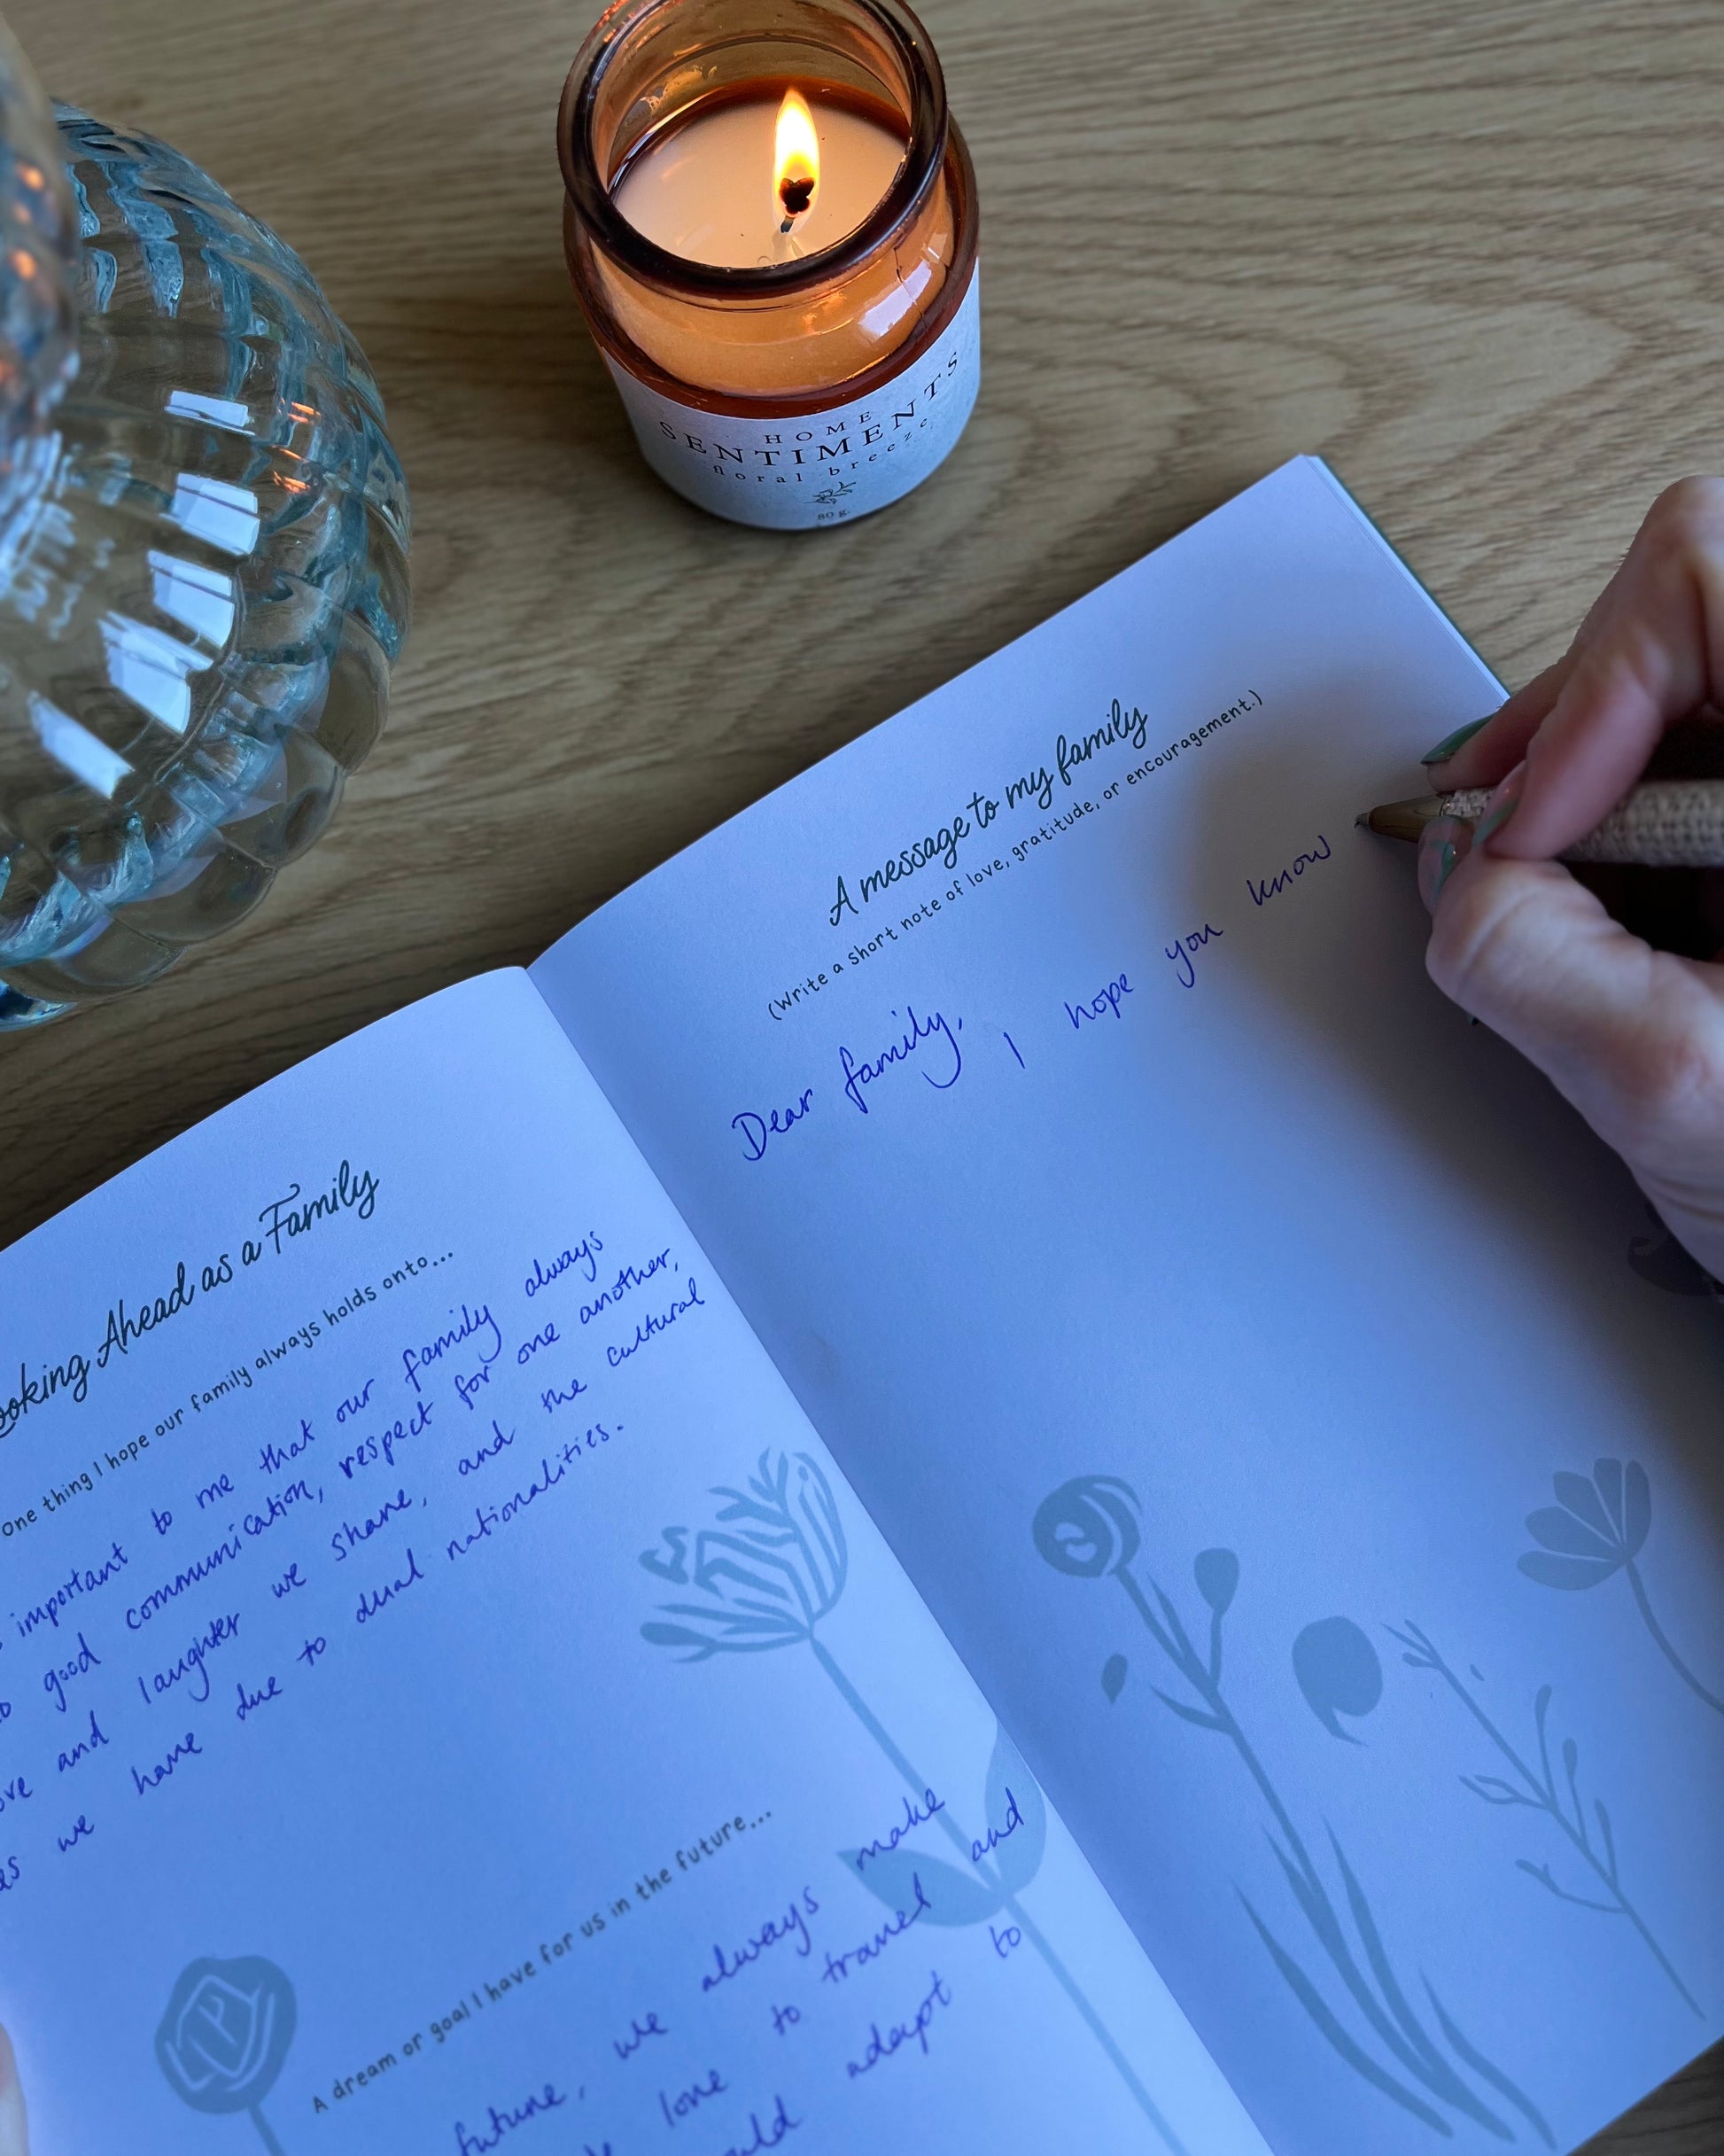 HOME
SENTIMENTS
floral breeze
80 g.
Looking Ahead as a Family
one thing I hope our family always holds onto...
important to me that our family always
good communication, respect for one another,
and laughter we share, and the cultural
we have due to dual nationalities.
A dream or goal I have for us in the future...
future, we always make
love to travel and
adapt to
A message to my family
(Write a short note of love, gratitude, or encouragement.)
Dear family,
I hope you know